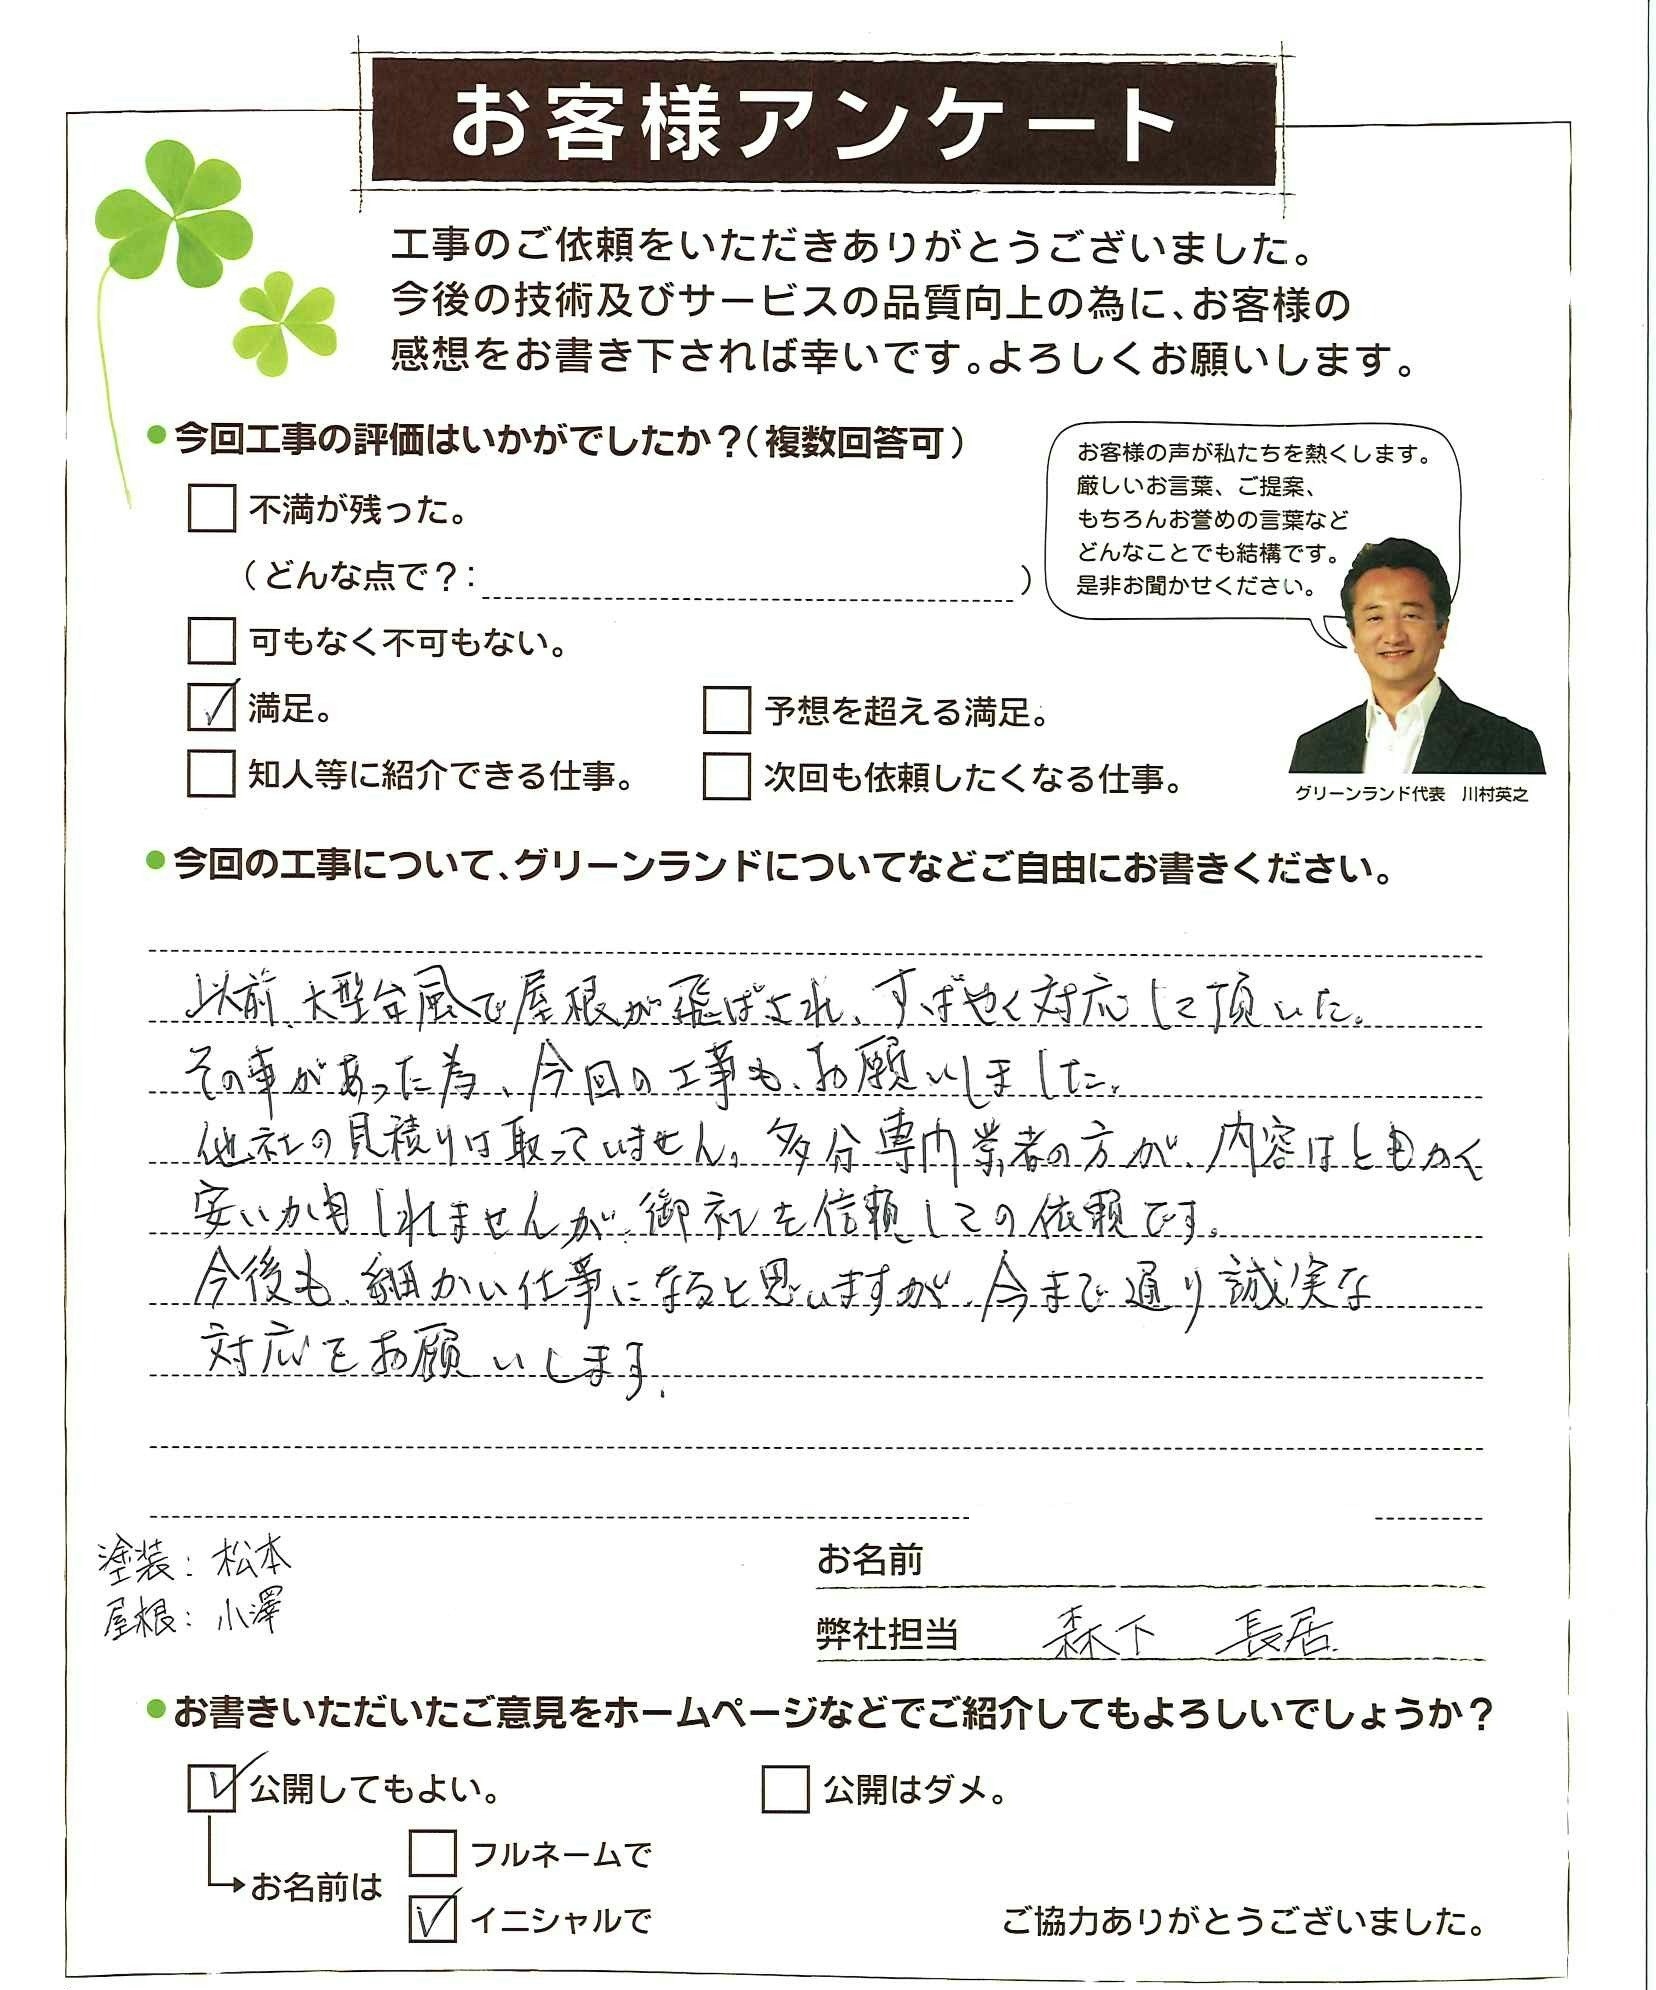 お客様アンケート
工事のご依頼をいただきありがとうございました。
今後の技術及びサービスの品質向上の為に、お客様の
感想をお書き下されば幸いです。よろしくお願いします。
●今回工事の評価はいかがでしたか？（複数回答可）
不満が残った。
（どんな点で？：　）
可もなく不可もない。
満足。
予想を超える満足。
知人等に紹介できる仕事。
次回も依頼したくなる仕事。
お客様の声が私たちを熱くします。
厳しいお言葉、ご提案、
もちろんお誉めの言葉など
どんなことでも結構です。
是非お聞かせください。
グリーンランド代表　川村英之
●今回の工事について、グリーンランドについてなどご自由にお書きください。
以前、大型台風で屋根が飛ばされ、すばやく対応して頂いた。
その事があった為、今回の工事も、お願いしました。
他社の見積りは取っていません。多分専門業者の方が、内容はともかく
安いかもしれませんが、御社を信頼しての依頼です。
今後も、細かい仕事になると思いますが、今まで通り誠実な
対応をお願いします。
塗装：松本
屋根：小澤
お名前
弊社担当　森下　長居
●お書きいただいたご意見をホームページなどでご紹介してもよろしいでしょうか？
公開してもよい。
公開はダメ。
お名前は
フルネームで
イニシャルで
ご協力ありがとうございました。